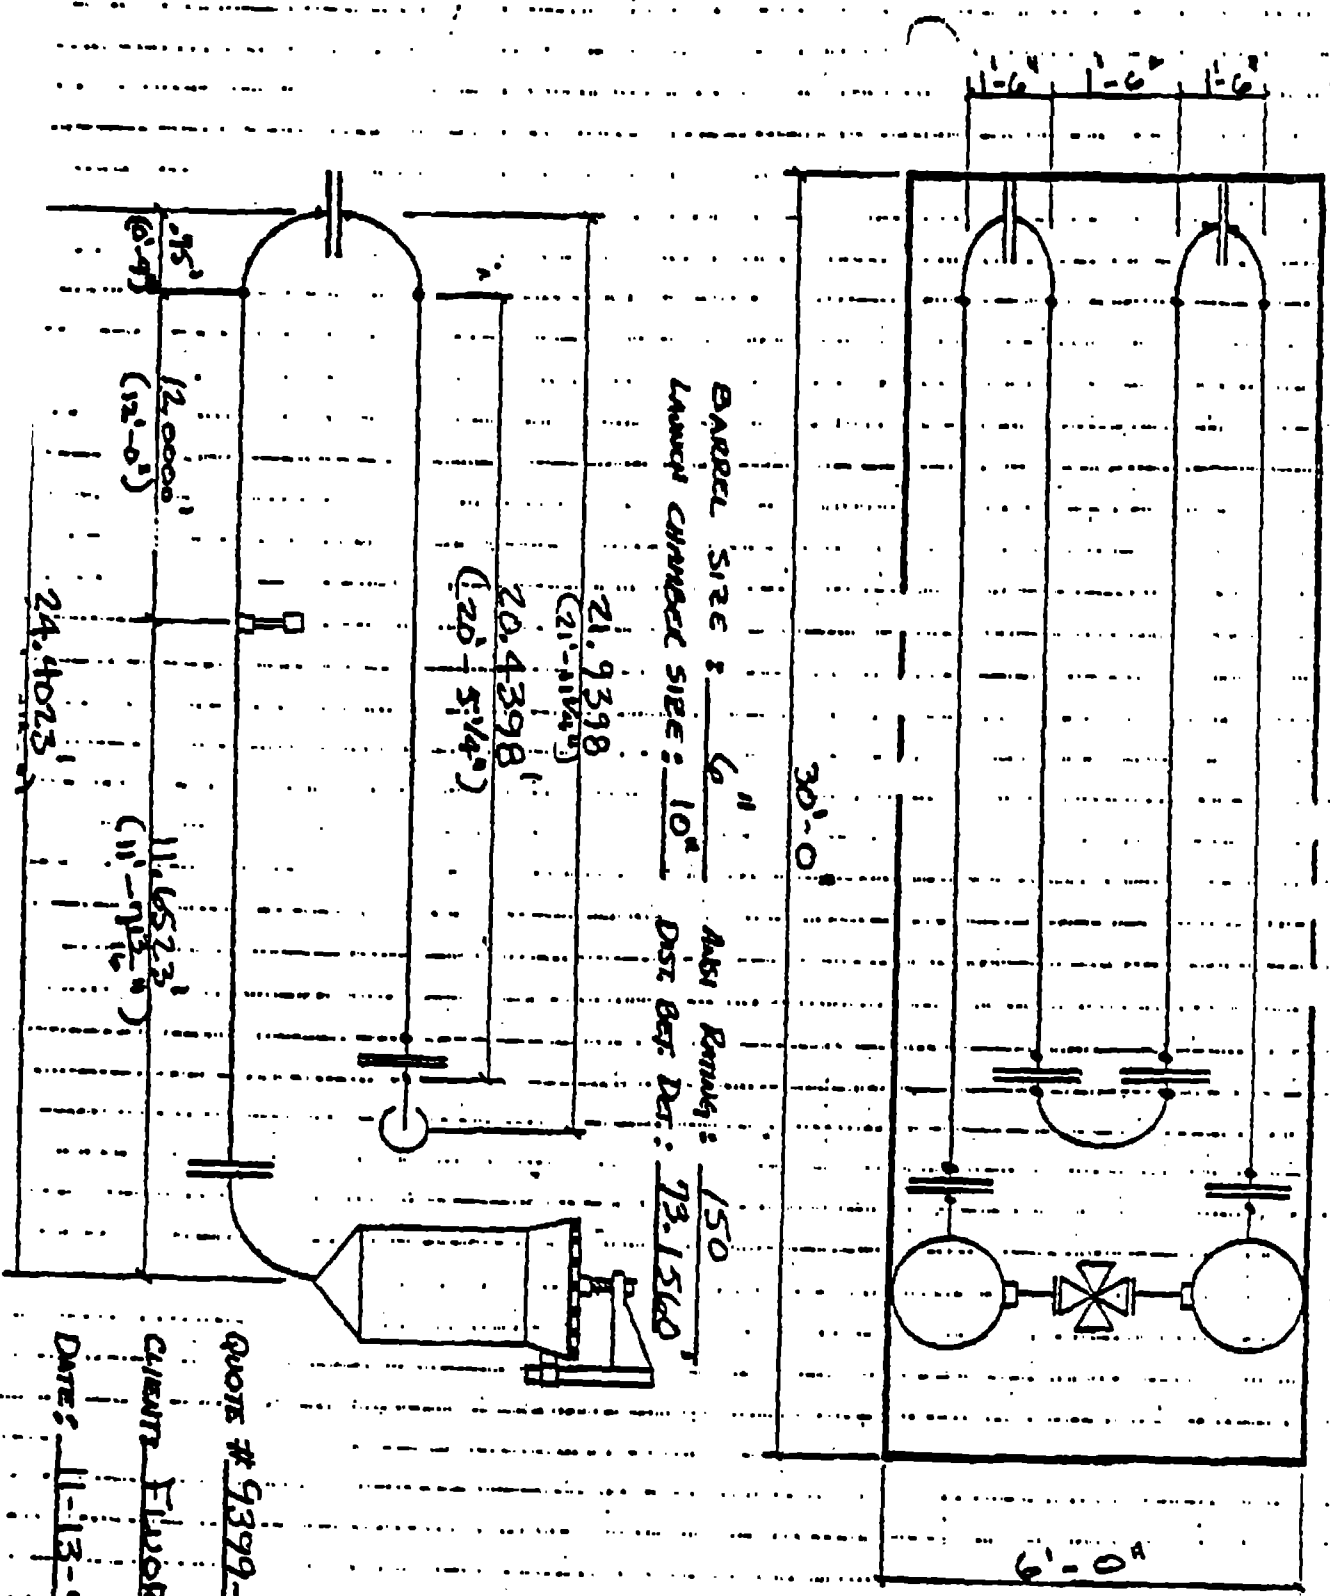 1'-6" 1'-6" 1'-6"
30'-0"
6'-0"
BARREL SIZE : 6" ANSI RATING : 150
LAUNCH CHAMBER SIZE : 10" DIST. BET. DET. : 73.1560'
21.9398
(21'-11 1/4")
20.4398'
(20'-5 1/4")
.75'
(0'-9")
12.0000'
(12'-0")
11.6523'
(11'-7 13/16")
24.4023'
QUOTE # 9399-
CLIENT: FLUOR
DATE: 11-13-